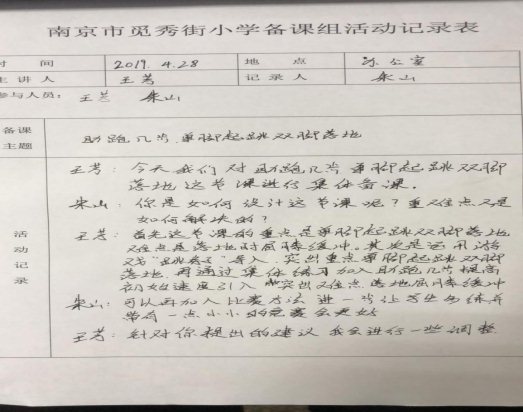 南京市觅秀街小学备课组活动记录表
时 间 2019.4.28 地 点 办公室
主讲人 王芳 记录人 朱山
参与人员： 王芳 朱山
备课主题 助跑几步单脚起跳双脚落地
活动记录
王芳：今天我们对助跑几步单脚起跳双脚
落地这节课进行集体备课。
朱山：你是如何设计这节课呢？重难点又是
如何解决的？
王芳：首先这节课的重点是单脚起跳双脚落地
难点是落地时屈膝缓冲。其次是运用游
戏“跳 ”导入，突出重点单脚起跳双脚
落地。再通过集体练习加入助跑几步提高
初始速度引入 突出难点落地屈膝缓冲
朱山：可以再加入比赛方法 进一步让学生多练习
带有一点小小的竞赛会更好
王芳：针对你提出的建议 我会进行一些调整